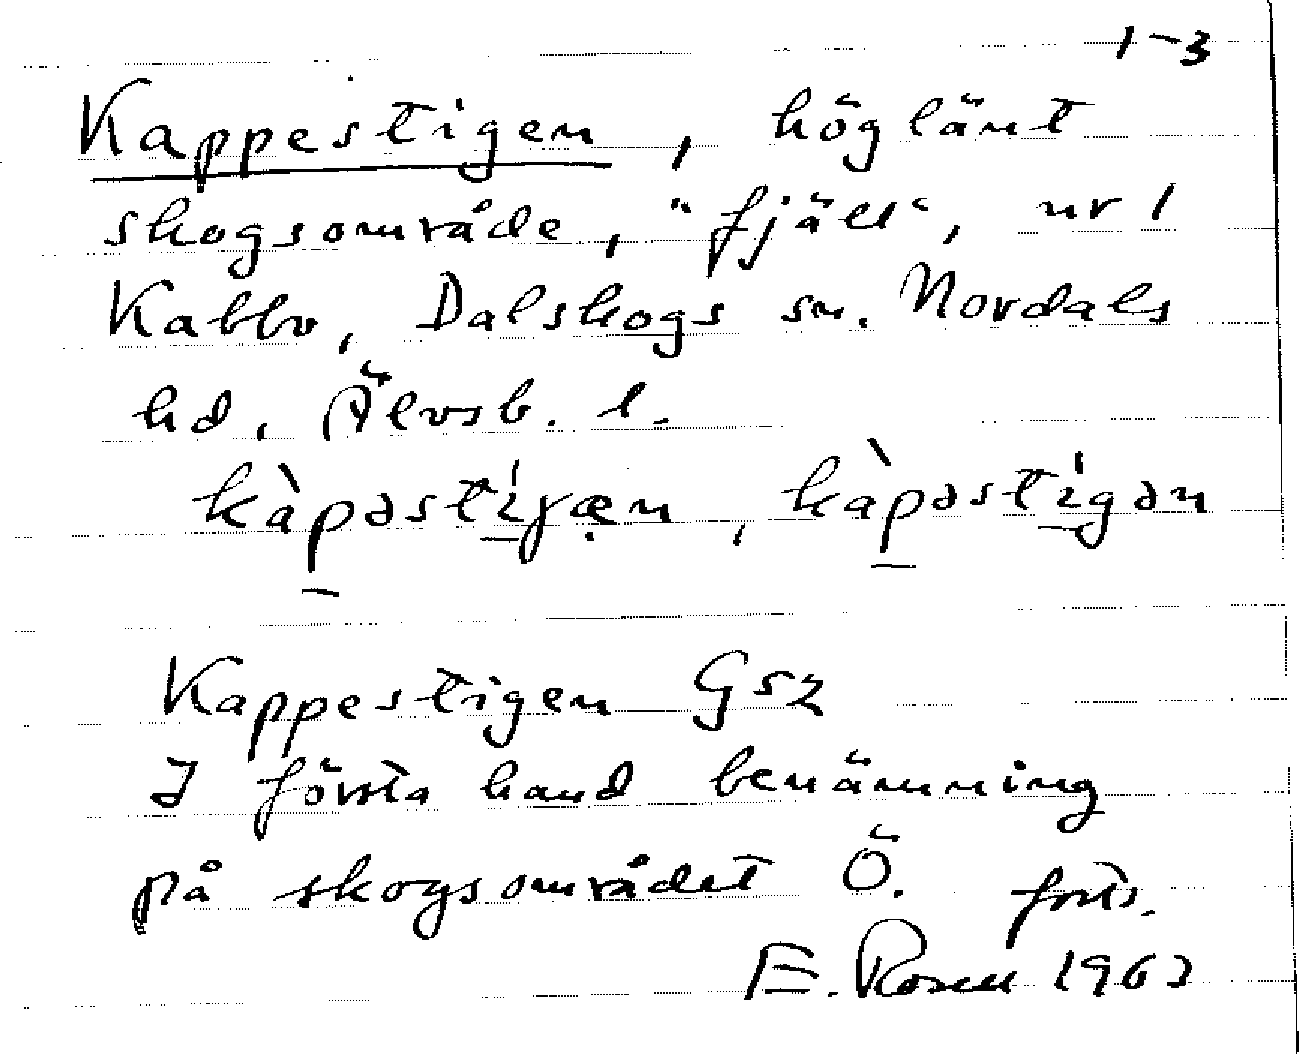 1-3
Kappestigen, höglänt
skogsområde, "fjäll", nr 1
Kabbo, Dalskogs sn. Nordals
hd, Älvsb. l.
kàpəstígæn, kàpəstígən
Kappestigen Gsz
I första hand benämning
på skogsområdet Ö. forts.
E. Rosell 1962